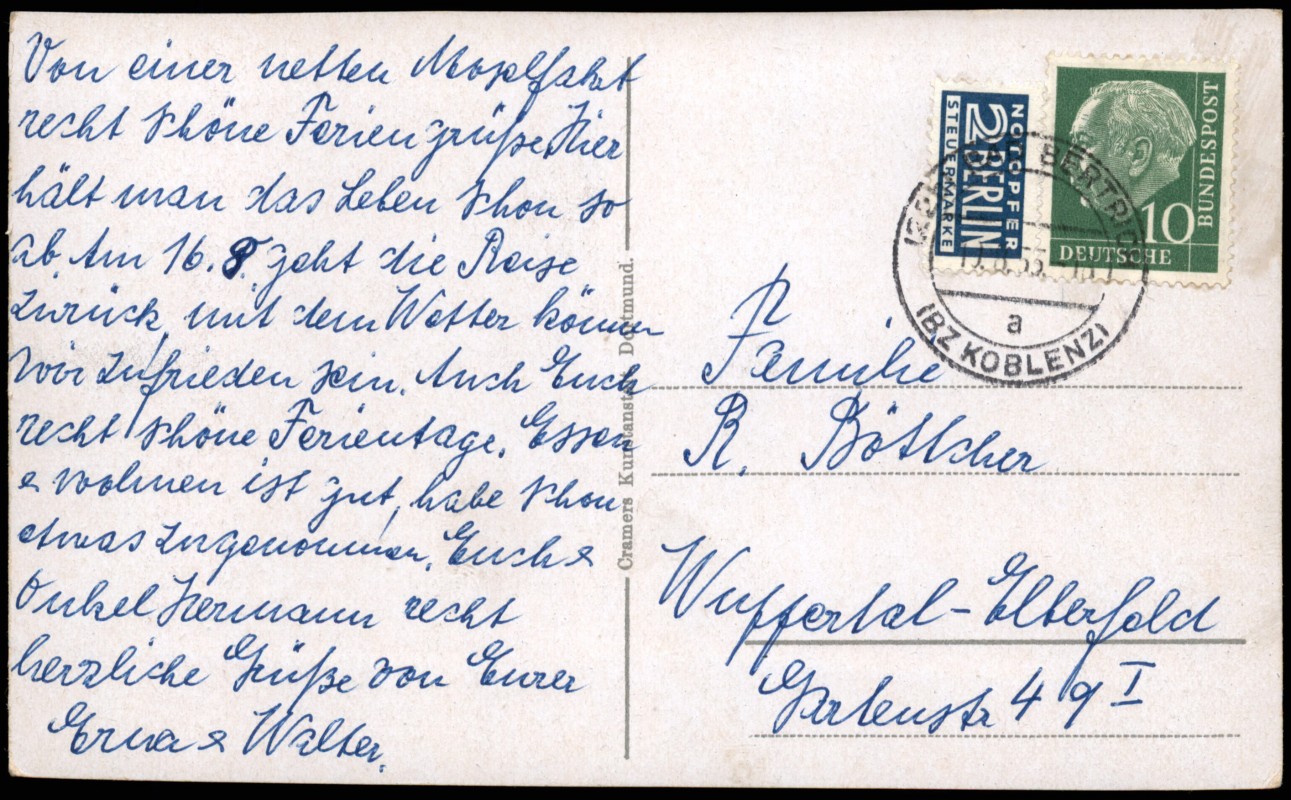 Von einer netten Moselfahrt
recht schöne Feriengrüße. Hier
hält man das Leben schon so
ab. Am 16. 8. geht die Reise
zurück, mit dem Wetter können
wir zufrieden sein. Auch Euch
recht schöne Ferientage. Essen
& wohnen ist gut, habe schon
etwas zugenommen. Euch &
Onkel Hermann recht
herzliche Grüße von Eurer
Erna & Walter.
Cramers Kunstanstalt Dortmund.
NOTOPFER
2 BERLIN
STEUERMARKE
10
DEUTSCHE
BUNDESPOST
BERTRICH
53
a
(BZ KOBLENZ)
Familie
R. Böttcher
Wuppertal-Elberfeld
Gartenstr 49 I